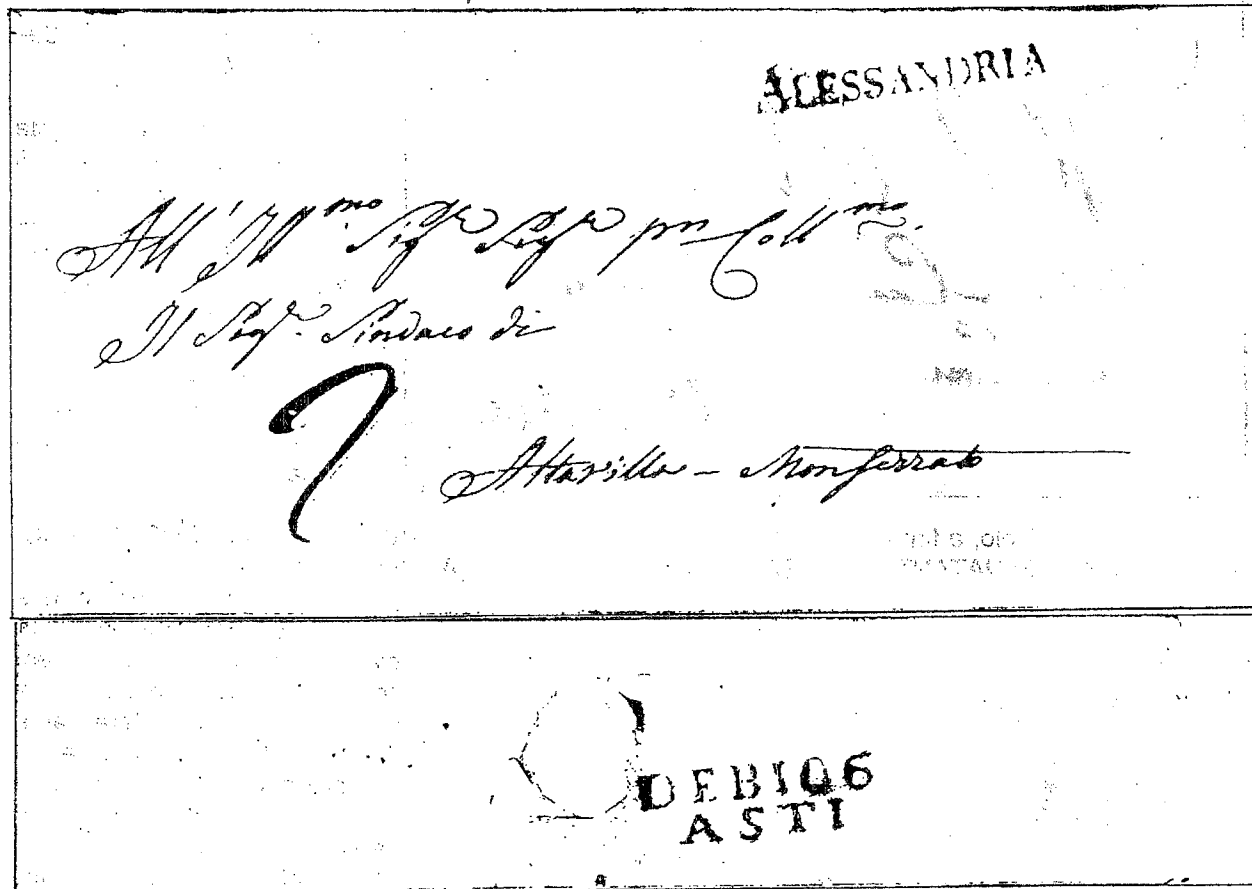 ALESSANDRIA
All' Ill.mo Sig.r Sig.r pn Coll.mo
Il Sig.r Sindaco di
7
Altavilla - Monferrato
DEBIO6
ASTI